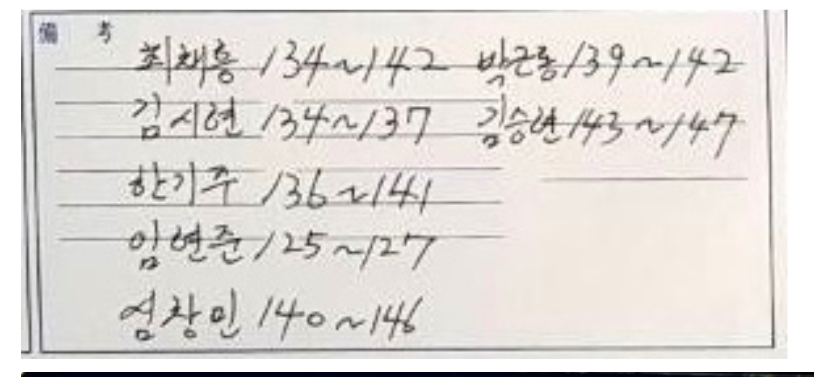 備 考
최채흥 134~142 박근홍 139~142
김시현 134~137 김승현 143~147
한기주 136~141
임현준 125~127
심창민 140~146